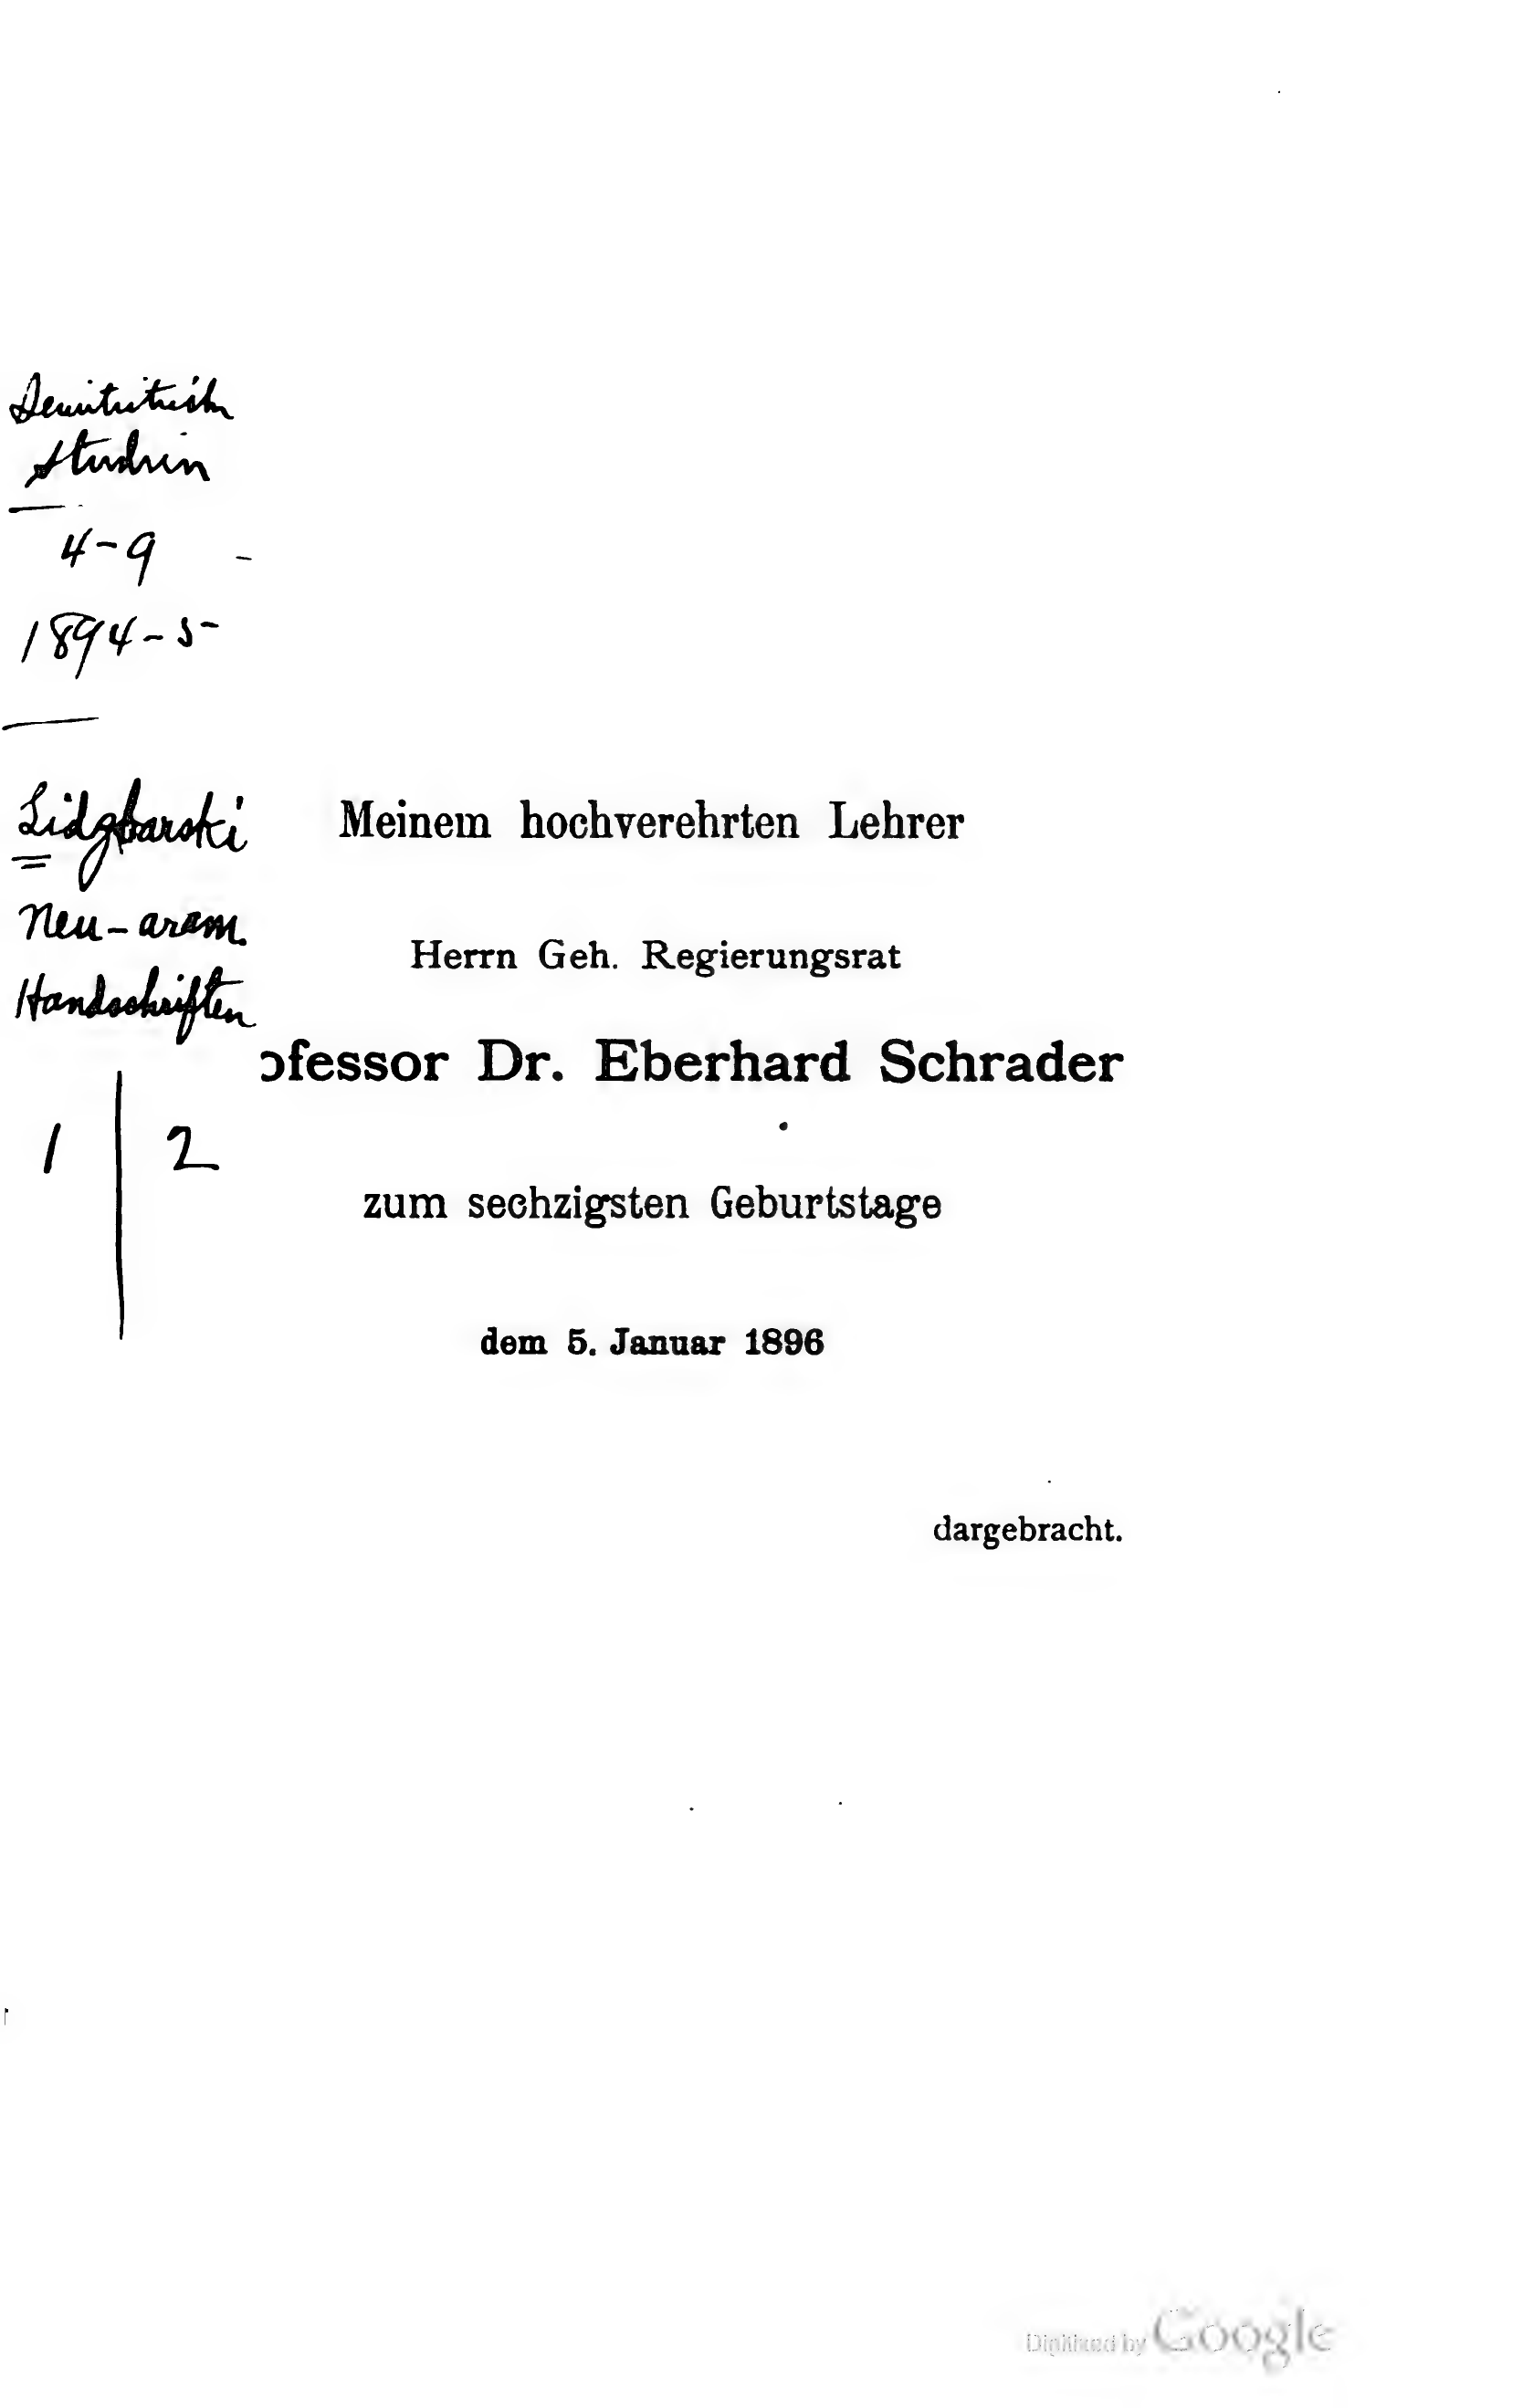 Studien
4-9
1894-5
Lidzbarski
Neu-aram.
Handschriften
1 | 2
Meinem hochverehrten Lehrer
Herrn Geh. Regierungsrat
ofessor Dr. Eberhard Schrader
zum sechzigsten Geburtstage
dem 5. Januar 1896
dargebracht.
Digitized by Google